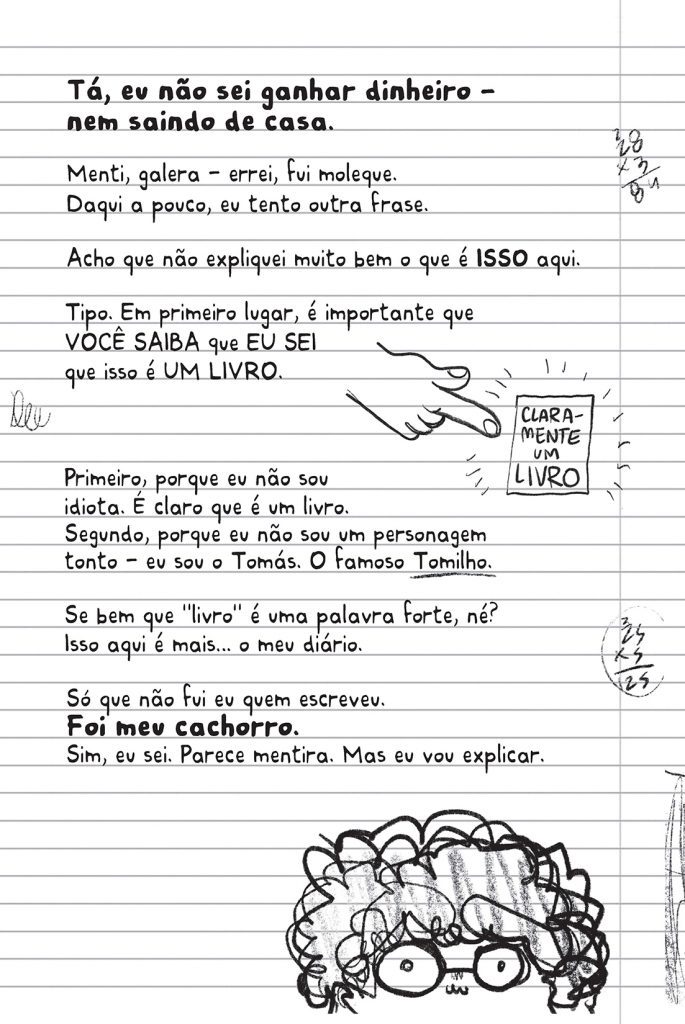 Tá, eu não sei ganhar dinheiro –
nem saindo de casa.
Menti, galera – errei, fui moleque.
Daqui a pouco, eu tento outra frase.
28
x 3
84
Acho que não expliquei muito bem o que é ISSO aqui.
Tipo. Em primeiro lugar, é importante que
VOCÊ SAIBA que EU SEI
que isso é UM LIVRO.
CLARA-
MENTE
UM
LIVRO
Primeiro, porque eu não sou
idiota. É claro que é um livro.
Segundo, porque eu não sou um personagem
tonto – eu sou o Tomás. O famoso Tomilho.
Se bem que "livro" é uma palavra forte, né?
Isso aqui é mais... o meu diário.
Só que não fui eu quem escreveu.
Foi meu cachorro.
Sim, eu sei. Parece mentira. Mas eu vou explicar.